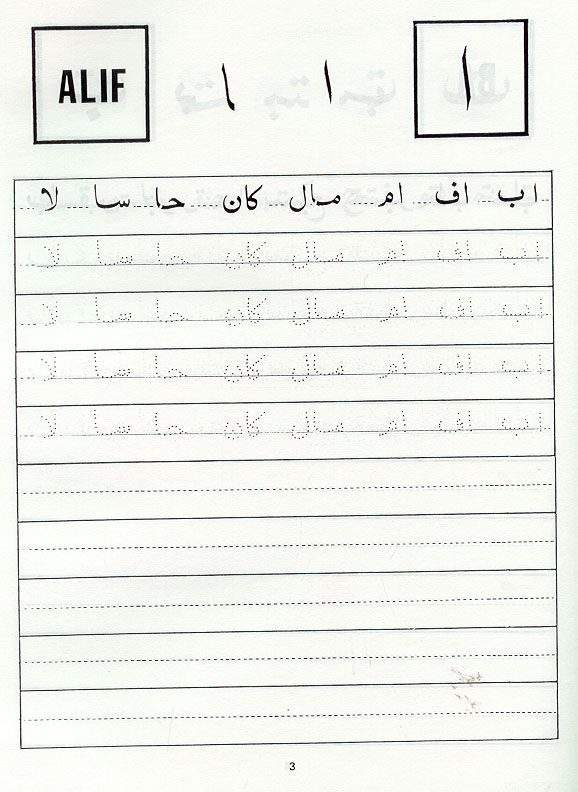 ALIF ـا ا ا
اب اف ام مال كان حا سا لا
اب اف ام مال كان حا سا لا
اب اف ام مال كان حا سا لا
اب اف ام مال كان حا سا لا
اب اف ام مال كان حا سا لا
3